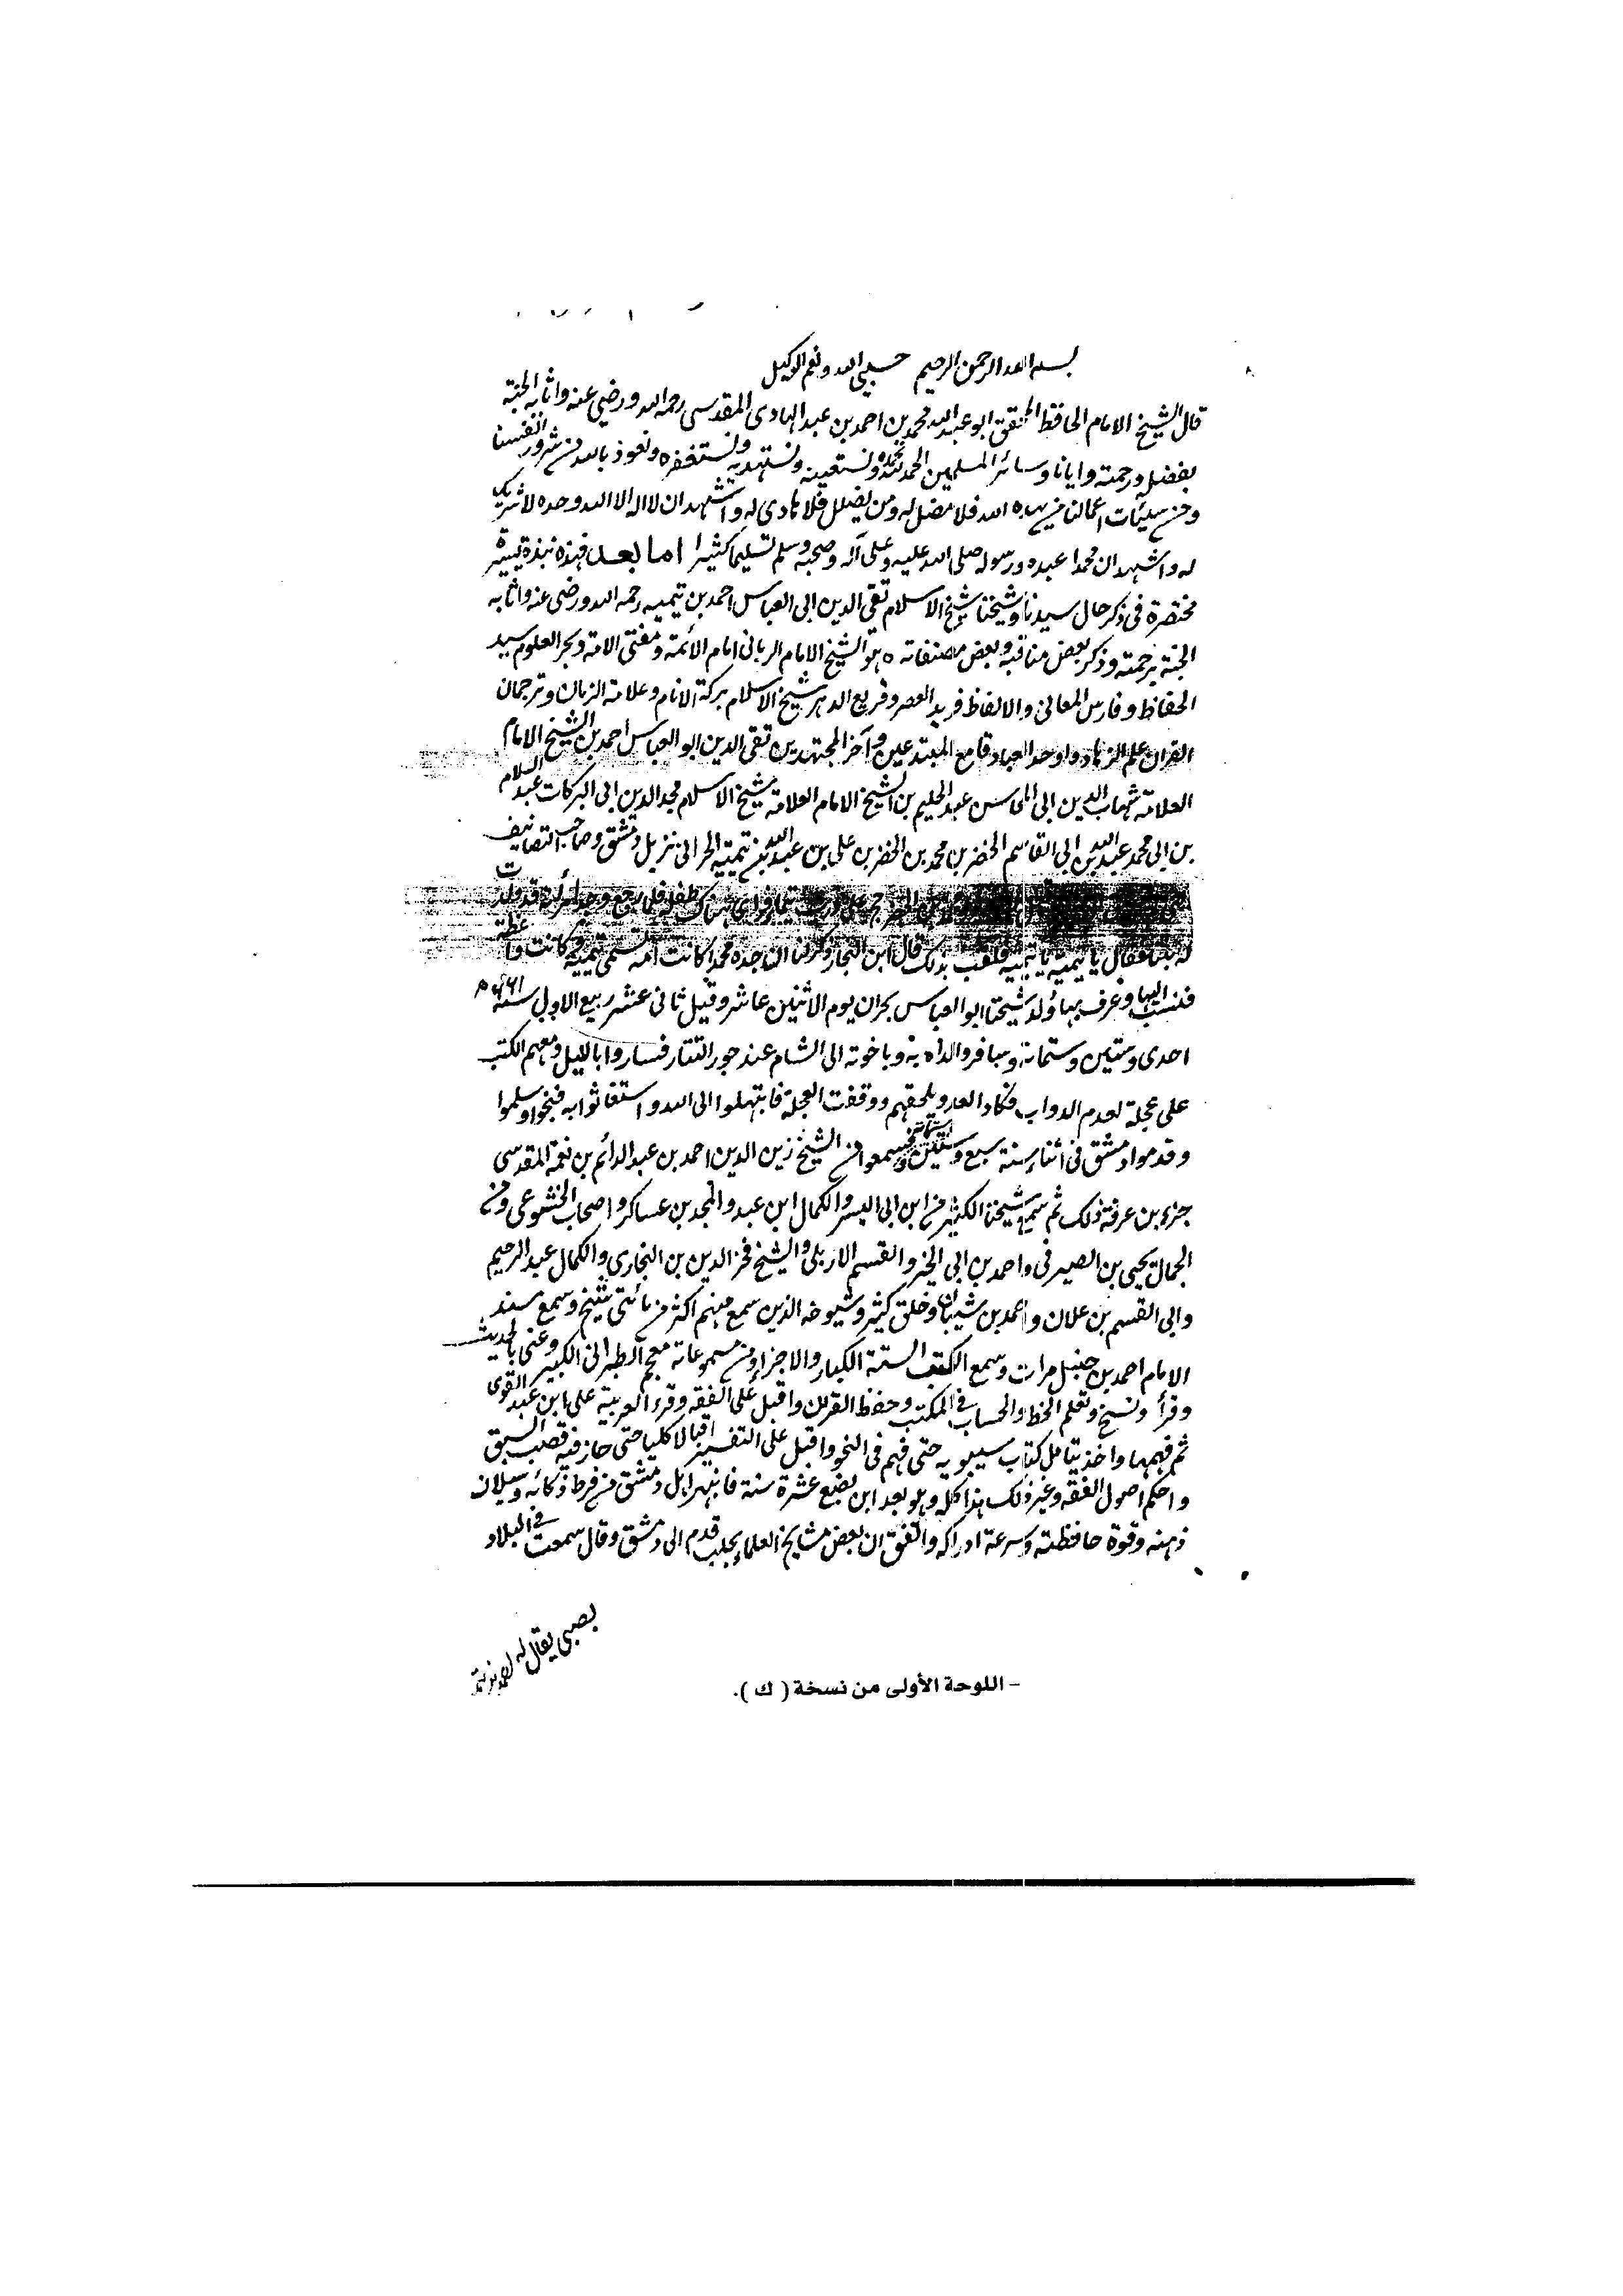 بسم الله الرحمن الرحيم حسبي الله ونعم الوكيل
قال الشيخ الامام الحافظ المحقق ابو عبد الله محمد بن احمد بن عبد الهادى المقدسى رحمه الله ورضي عنه واثابه الجنة
بفضل رحمته وايانا وسائر المسلمين الحمد لله نحمده ونستعينه ونستهديه ونستغفره ونعوذ بالله من شرور انفسنا
ومن سيئات اعمالنا من يهده الله فلا مضل له ومن يضلل فلا هادى له واشهد ان لا اله الا الله وحده لا شريك
له واشهد ان محمدا عبده ورسوله صلى الله عليه وعلى آله وصحبه وسلم تسليما كثيرا اما بعد فهذه نبذة يسيرة
مختصرة فى ذكر حال سيدنا وشيخنا شيخ الاسلام تقى الدين ابى العباس احمد بن تيميه رحمه الله ورضى عنه واثابه
الجنة برحمته وذكر بعض مناقبه وبعض مصنفاته ه هو الشيخ الامام الربانى امام الائمة ومفتى الامة وبحر العلوم سيد
الحفاظ وفارس المعانى والالفاظ فريد العصر وقريع الدهر شيخ الاسلام بركة الانام وعلامة الزمان وترجمان
القران علم الزهاد واوحد العباد قامع المبتدعين وآخر المجتهدين تقى الدين ابو العباس احمد بن الشيخ الامام
العلامة شهاب الدين ابى المحاسن عبد الحليم بن الشيخ الامام العلامة شيخ الاسلام مجد الدين ابى البركات عبد السلام
بن ابى محمد عبد الله بن ابى القاسم الخضر بن محمد بن الخضر بن على بن عبد الله بن تيمية الحرانى نزيل دمشق وصاحب التصانيف
على درب تيماء فراى هناك طفلة فلما رجع وجد امرأته قد ولدت
له بنتا فقال يا تيمية يا تيمية فلقب بذلك قال ابن النجار وذكر لنا ان جده محمدا كانت امه تسمى تيمية وكانت واعظة
فنسب اليها وعرف بها ولد شيخنا ابو العباس بحران يوم الاثنين عاشر وقيل ثانى عشر ربيع الاول سنة ٦٦١ ه
احدى وستين وستمائة وسافر والداه به وباخوته الى الشام عند جور التتار فساروا بالليل ومعهم الكتب
على عجلة لعدم الدواب فكاد العدو يلحقهم ووقفت العجلة فابتهلوا الى الله واستغاثوا به فنجوا وسلموا
وقدموا دمشق فى أثناء سنة سبع وستين وستمائة فسمعوا من الشيخ زين الدين احمد بن عبد الدائم بن نعمة المقدسى
جزء بن عرفة ذلك ثم سمع شيخنا الكثير من ابن ابى اليسر والكمال ابن عبد والمجد بن عساكر واصحاب الخشوعى ومن
الجمال يحيى بن الصيرفى واحمد بن ابى الخير والقسم الاربلى والشيخ فخر الدين بن البخارى والكمال عبد الرحيم
وابى القسم بن علان واحمد بن شيبان وخلق كثير وشيوخه الذين سمع منهم اكثر من مائتى شيخ وسمع مسند
الامام احمد بن حنبل مرات وسمع الكتب الستة الكبار والاجزاء ومن مسموعاته معجم الطبرانى الكبير وعنى بالحديث
وقرأ ونسخ وتعلم الخط والحساب فى المكتب وحفظ القرآن واقبل على الفقه وقرء العربية على ابن عبد القوى
ثم فهمها واخذ يتامل كتاب سيبويه حتى فهم فى النحو واقبل على التفسير اقبالا كليا حتى حاز فيه قصب السبق
واحكم اصول الفقه وغير ذلك هذا كله وهو بعد ابن بضع عشرة سنة فانبهر اهل دمشق من فرط ذكائه وسيلان
ذهنه وقوة حافظته وسرعة ادراكه واتفق ان بعض مشايخ العلماء بحلب قدم الى دمشق وقال سمعت فى البلاد
بصبى يقال له احمد بن تيمية
- اللوحة الأولى من نسخة ( ك ).